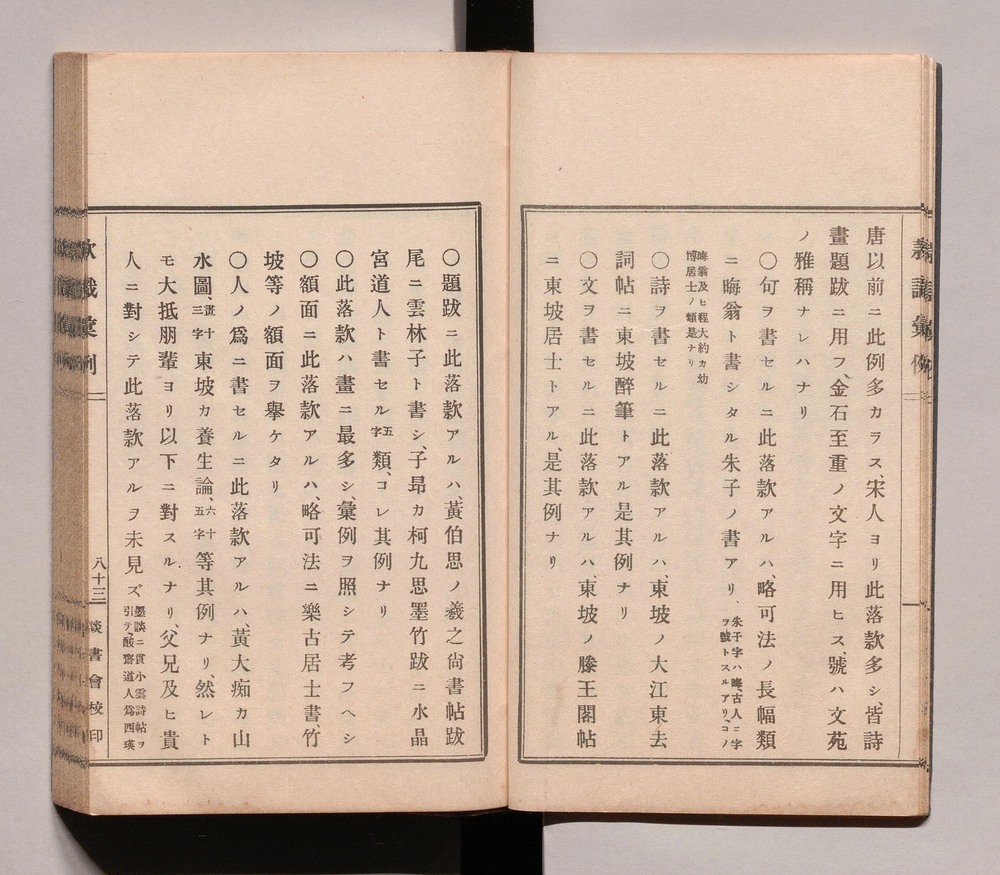 唐以前ニ此例多カラス、宋人ヨリ此落款多シ、皆詩
畫題跋ニ用フ、金石至重ノ文字ニ用ヒス、號ハ文苑
ノ雅稱ナレハナリ
〇句ヲ書セルニ此落款アルハ、略可法ノ長幅類
ニ晦翁ト書シタル朱子ノ書アリ、朱子字ハ晦、古人ニ字
ヲ號トスルアリ、コノ
晦翁及ヒ程大約カ幼
博居士ノ類是ナリ
〇詩ヲ書セルニ此落款アルハ、東坡ノ大江東去
詞帖ニ東坡醉筆トアル是其例ナリ
〇文ヲ書セルニ此落款アルハ、東坡ノ滕王閣帖
ニ東坡居士トアル、是其例ナリ
〇題跋ニ此落款アルハ、黃伯思ノ羲之尙書帖跋
尾ニ雲林子ト書シ、子昻カ柯九思墨竹跋ニ水晶
宮道人ト書セル五字類、コレ其例ナリ
〇此落款ハ畫ニ最多シ、彙例ヲ照シテ考フヘシ
〇額面ニ此落款アルハ、略可法ニ樂古居士書、竹
坡等ノ額面ヲ擧ケタリ
〇人ノ爲ニ書セルニ此落款アルハ、黃大痴カ山
水圖、畫十三字東坡カ養生論、六十五字等其例ナリ、然レト
モ大抵朋輩ヨリ以下ニ對スルナリ、父兄及ヒ貴
人ニ對シテ此落款アルヲ未見ズ墨談ニ貫小雲詩帖ヲ
引テ、酸齋道人爲西瑛
款識彙例
八十三
談書會校印